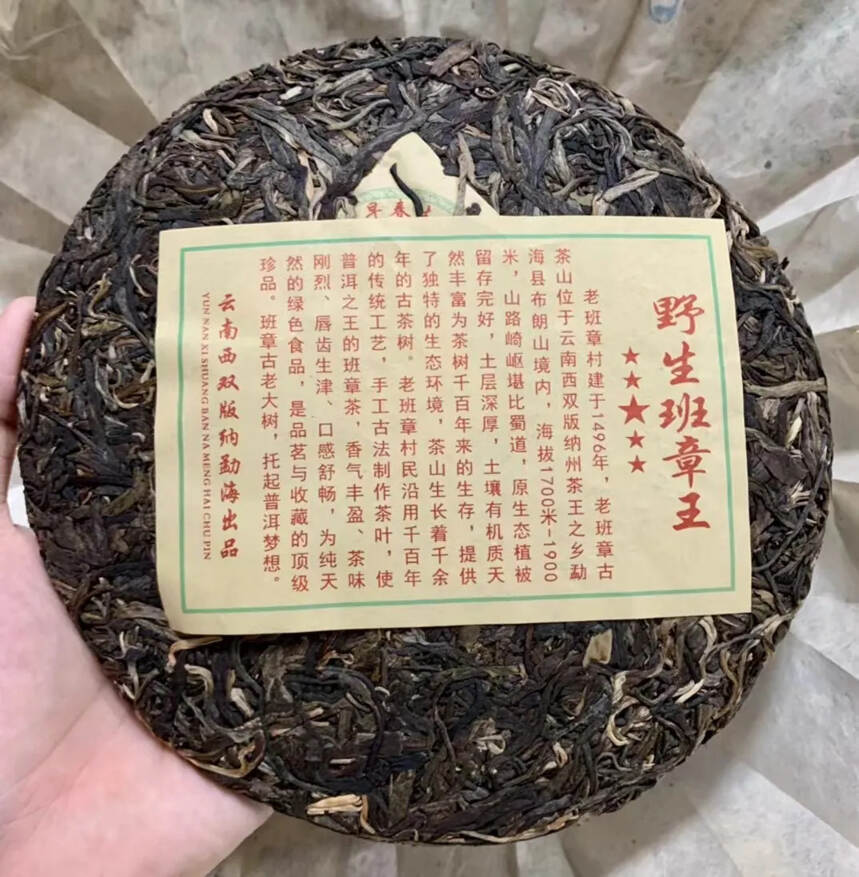 早春
野生班章王
★★★★★
老班章村建于1496年，老班章古
茶山位于云南西双版纳州茶王之乡勐
海县布朗山境内，海拔1700米-1900
米，山路崎岖堪比蜀道，原生态植被
留存完好，土层深厚，土壤有机质天
然丰富为茶树千百年来的生存，提供
了独特的生态环境，茶山生长着千余
年的古茶树。老班章村民沿用千百年
的传统工艺，手工古法制作茶叶，使
普洱之王的班章茶，香气丰盈、茶味
刚烈、唇齿生津、口感舒畅，为纯天
然的绿色食品，是品茗与收藏的顶级
珍品。班章古老大树，托起普洱梦想。
云南西双版纳勐海出品
YUN NAN XI SHUANG BAN NA MENG HAI CHU PIN